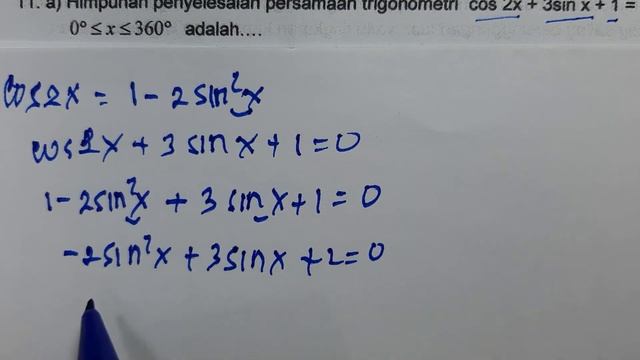 11. a) Himpunan penyelesaian persamaan trigonometri cos 2x + 3sin x + 1 =
0° ≤ x ≤ 360° adalah....
cos2x = 1 - 2 sin²x
cos2x + 3 sin x + 1 = 0
1 - 2sin²x + 3 sin x + 1 = 0
-2sin²x + 3sinx + 2 = 0